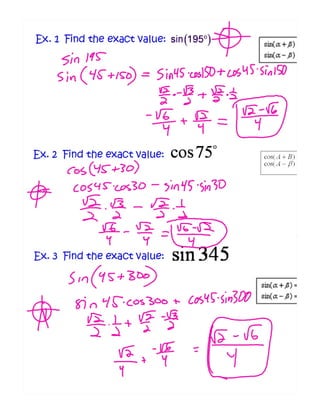 Ex. 1 Find the exact value: sin(195°)
sin(α + β)
sin(α − β)
sin 195
sin(45+150) = sin45·cos150+cos45·sin150
√2/2·-√3/2 + √2/2·1/2
-√6/4 + √2/4 = √2-√6/4
Ex. 2 Find the exact value: cos 75°
cos(A + B)
cos(A − B)
cos(45+30)
cos45·cos30 − sin45·sin30
√2/2·√3/2 − √2/2·1/2
√6/4 − √2/4 = √6-√2/4
Ex. 3 Find the exact value: sin 345
sin(45+300)
sin(α + β) =
sin(α − β) =
sin 45·cos300 + cos45·sin300
√2/2·1/2 + √2/2·-√3/2
√2/4 + -√6/4 = √2-√6/4